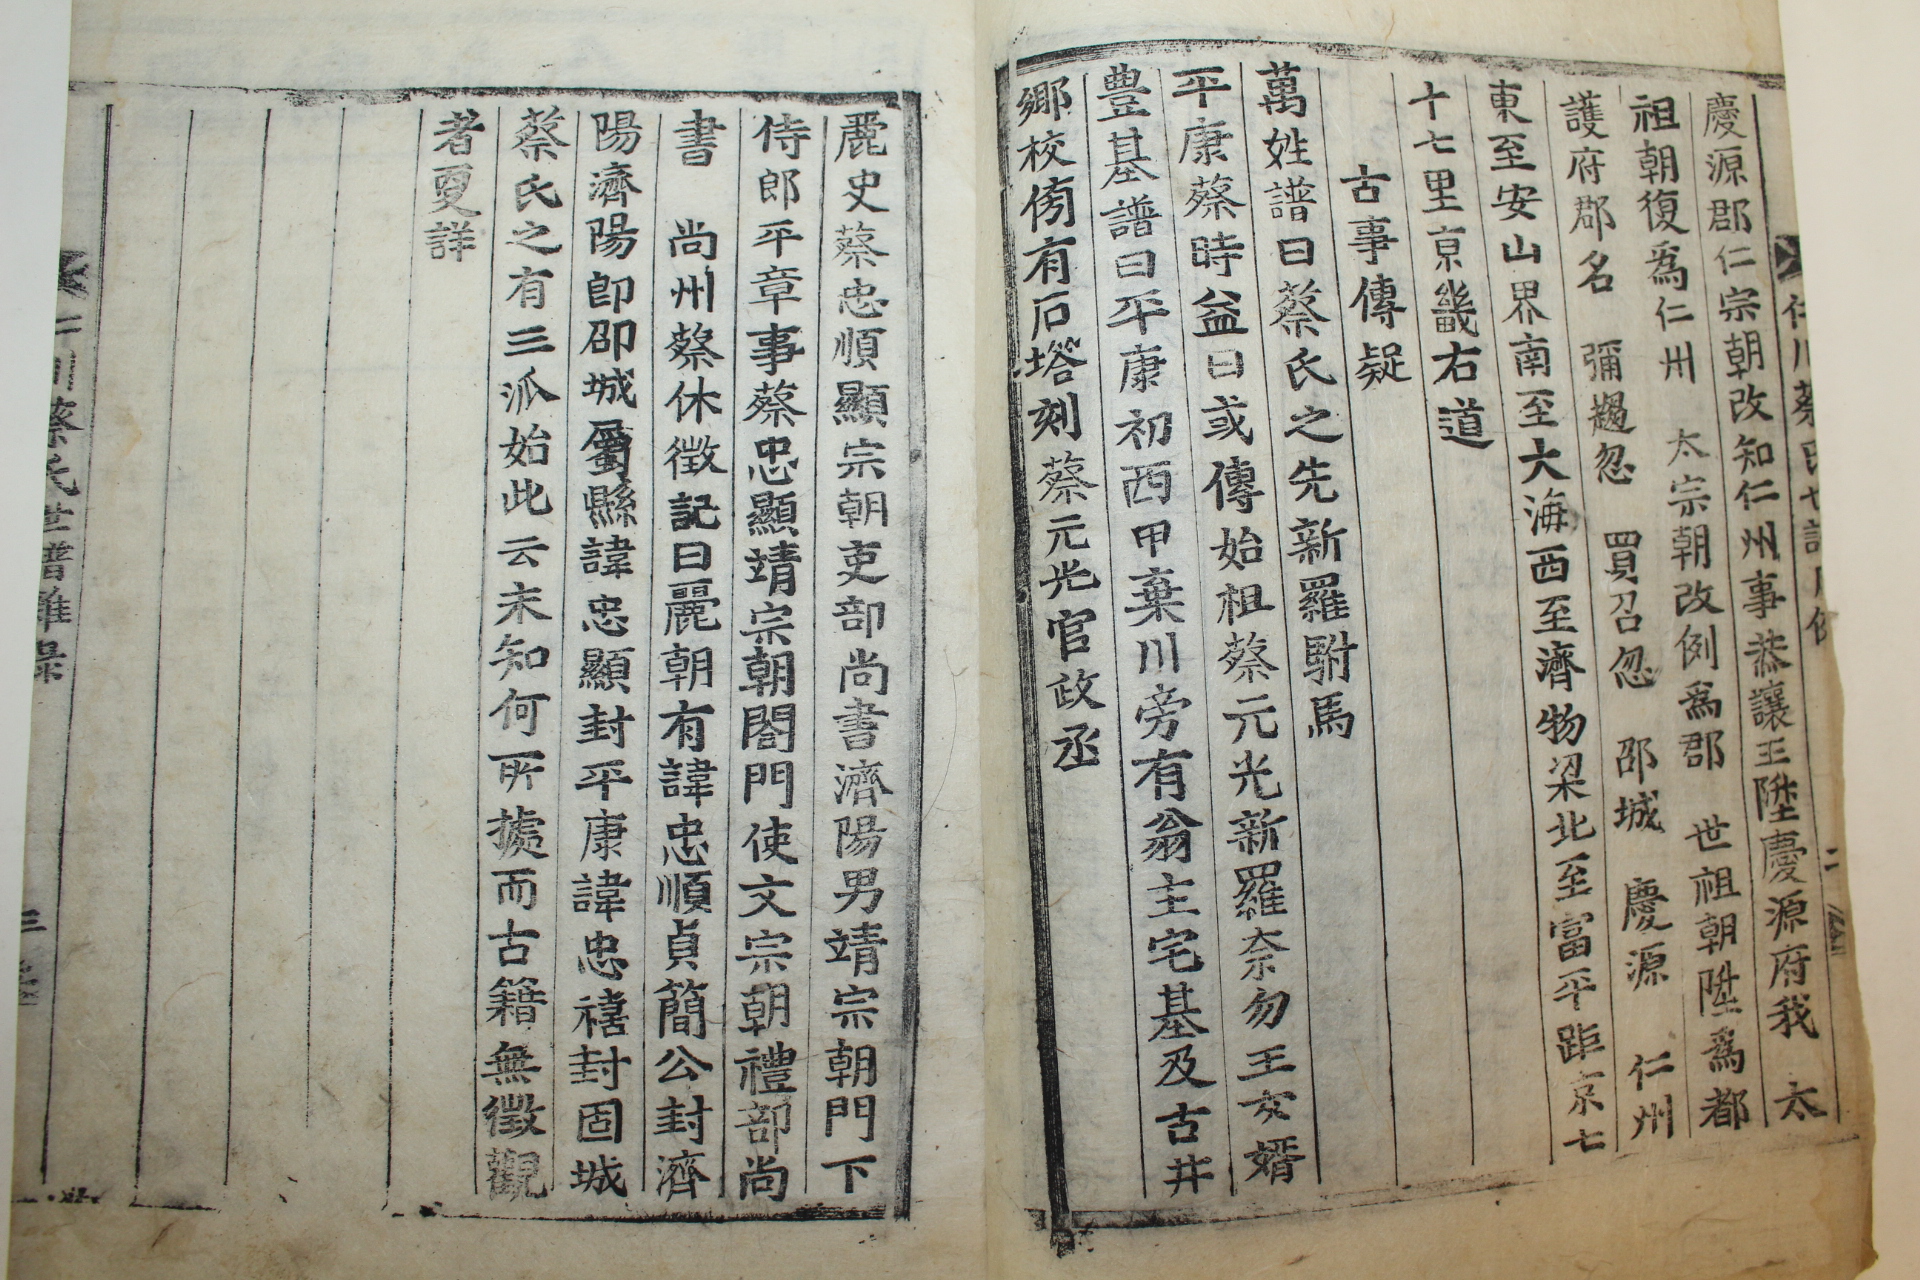 仁川蔡氏世譜凡例 二
慶源郡仁宗朝改知仁州事恭讓王陞慶源府我 太
祖朝復爲仁州 太宗朝改例爲郡 世祖朝陞爲都
護府郡名 彌趨忽 買召忽 邵城 慶源 仁州
東至安山界南至大海西至濟物梁北至富平距京七
十七里京畿右道
古事傳疑
萬姓譜曰蔡氏之先新羅駙馬
平康蔡時益曰或傳始祖蔡元光新羅奈勿王女婿
豊基譜曰平康初西甲棄川旁有翁主宅基及古井
鄕校傍有石塔刻蔡元光官政丞
麗史蔡忠順顯宗朝吏部尚書濟陽男靖宗朝門下
侍郎平章事蔡忠顯靖宗朝閤門使文宗朝禮部尚
書 尚州蔡休徵記曰麗朝有諱忠順貞簡公封濟
陽濟陽卽邵城屬縣諱忠顯封平康諱忠禧封固城
蔡氏之有三派始此云未知何所據而古籍無徵觀
者更詳
仁川蔡氏世譜雜录 三